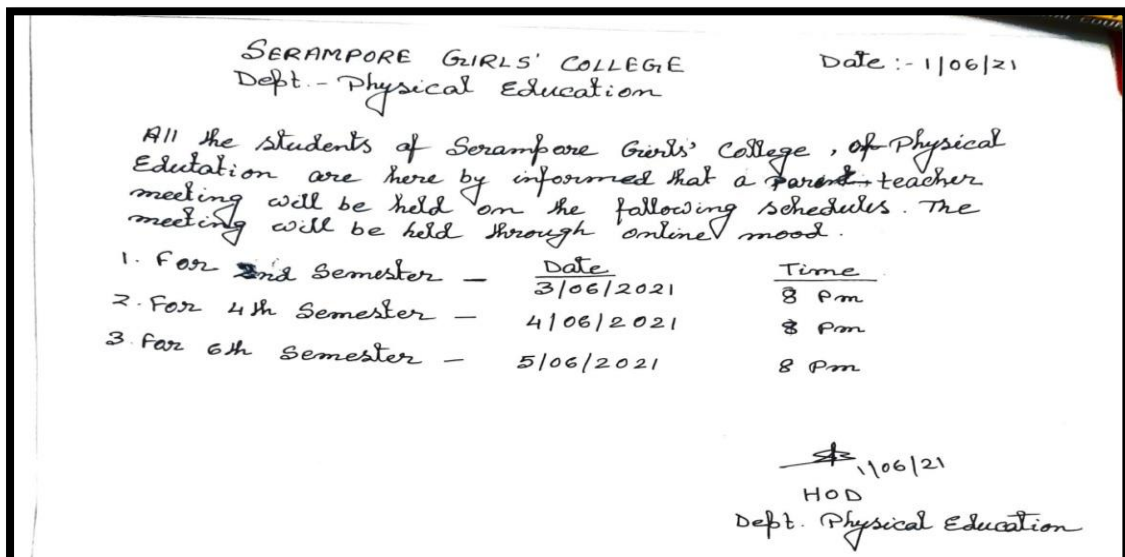 SERAMPORE GIRLS' COLLEGE Date :- 1/06/21
Dept. - Physical Education
All the students of Serampore Girls' College, of Physical
Edutation are here by informed that a parent-teacher
meeting will be held on the following schedules. The
meeting will be held through online mood.
Date Time
1. For 2nd Semester — 3/06/2021 8 Pm
2. For 4th Semester — 4/06/2021 8 Pm
3. For 6th Semester — 5/06/2021 8 Pm
1/06/21
HOD
Dept. Physical Education